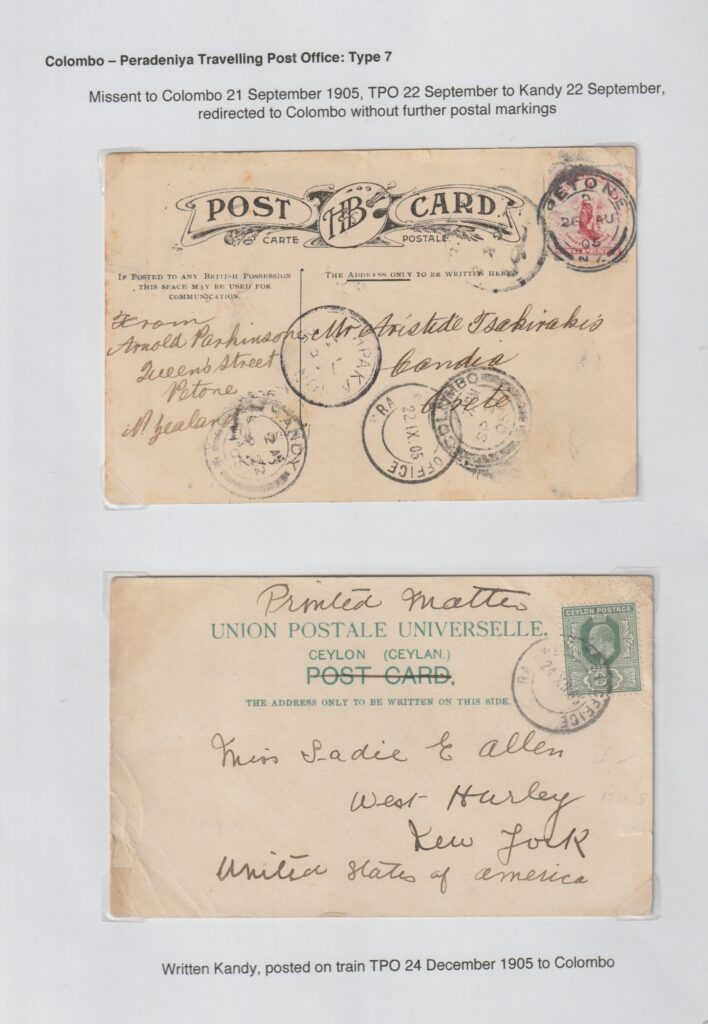 Colombo – Peradeniya Travelling Post Office: Type 7
Missent to Colombo 21 September 1905, TPO 22 September to Kandy 22 September,
redirected to Colombo without further postal markings
POST HB CARD.
CARTE POSTALE
PETONE
2
26 AU
05
N.Z
IF POSTED TO ANY BRITISH POSSESSION
THIS SPACE MAY BE USED FOR
COMMUNICATION.
THE ADDRESS ONLY TO BE WRITTEN HERE
From
Arnold Parkinson
Queen's Street
Petone
N. Zealand
Mr Aristide Tsakirakis
Candia
Crete
COLOMBO
RA
22 IX.05
OFFICE
KANDY
Printed Matter
UNION POSTALE UNIVERSELLE.
CEYLON (CEYLAN.)
POST CARD.
THE ADDRESS ONLY TO BE WRITTEN ON THIS SIDE.
CEYLON POSTAGE
RA
OFFICE
Miss Sadie E Allen
West Hurley
New York
United States of America
Written Kandy, posted on train TPO 24 December 1905 to Colombo